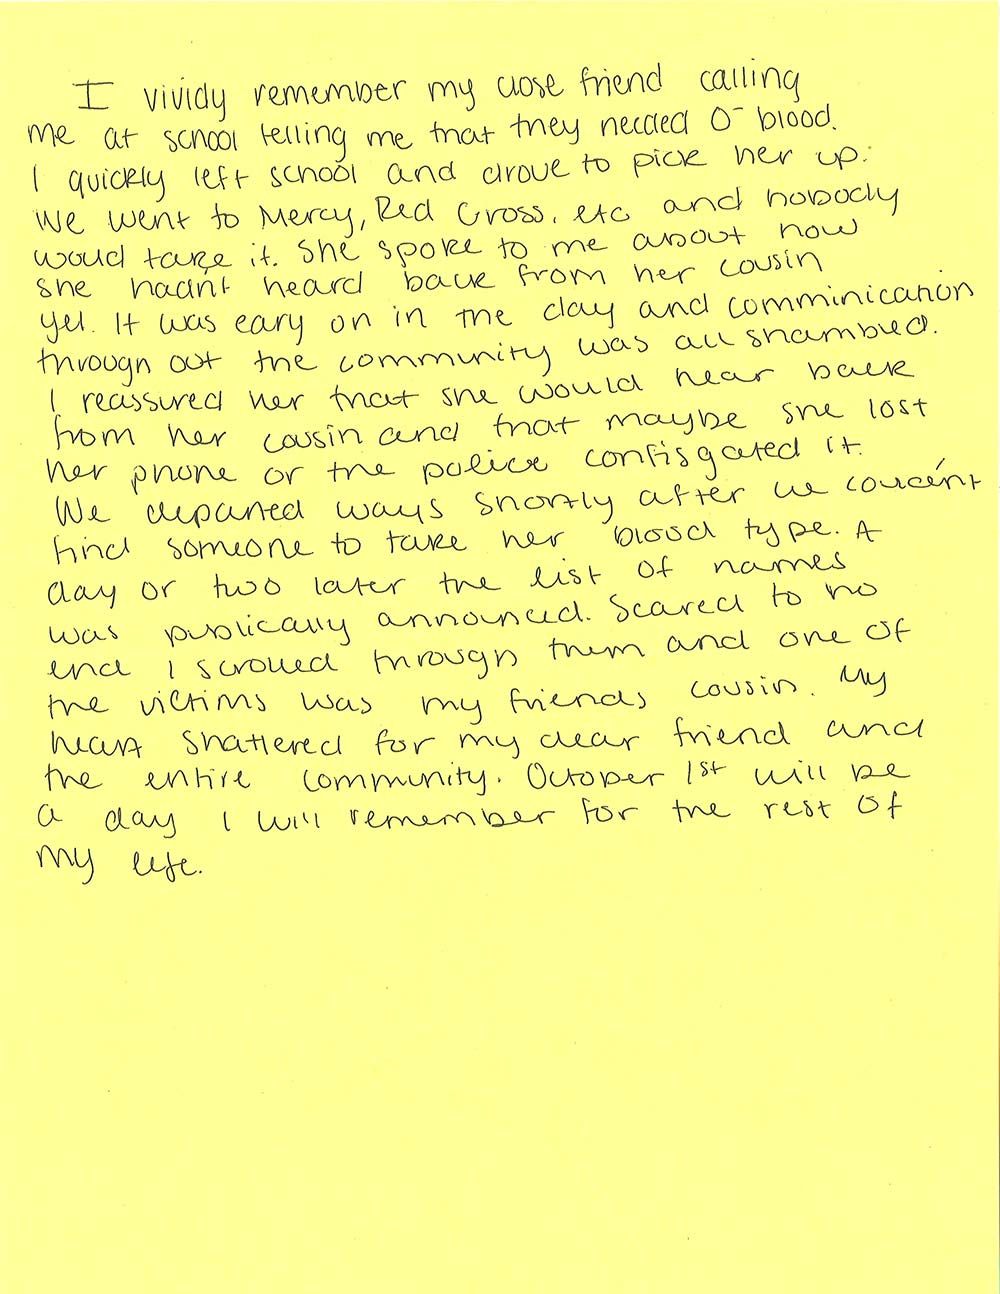 I vividy remember my close friend calling
me at school telling me that they needed O- blood.
I quickly left school and drove to pick her up.
We went to Mercy, Red Cross, etc and nobody
would take it. She spoke to me about how
she hadn't heard back from her cousin
yet. It was eary on in the day and comminication
through out the community was all shambled.
I reassured her that she would hear back
from her cousin and that maybe she lost
her phone or the police confisgated it.
We departed ways shortly after we couldn't
find someone to take her blood type. A
day or two later the list of names
was publically announced. Scared to no
end I scrolled through them and one of
the victims was my friends cousin. My
heart shattered for my dear friend and
the entire community. October 1st will be
a day I will remember for the rest of
my life.